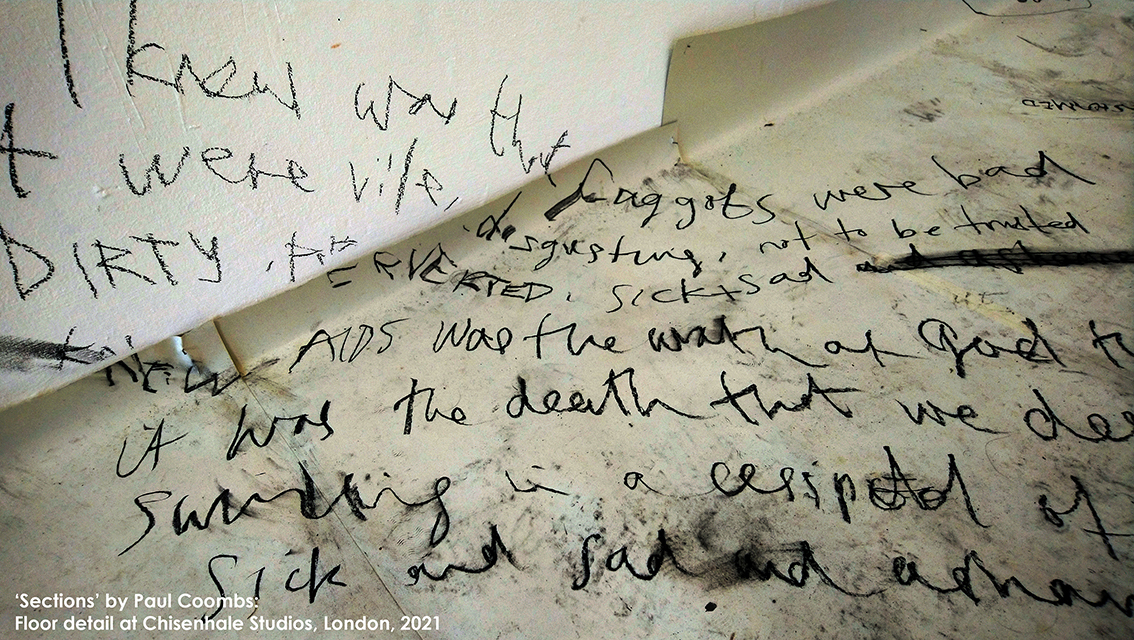 I knew was that
t were vile, de faggots were bad
DIRTY, PERVERTED, disgusting, not to be trusted
sick + sad
KNEW AIDS was the wrath of God t
it was the death that we des
swirling in a cesspool of
Sick and sad and asham
'Sections' by Paul Coombs:
Floor detail at Chisenhale Studios, London, 2021